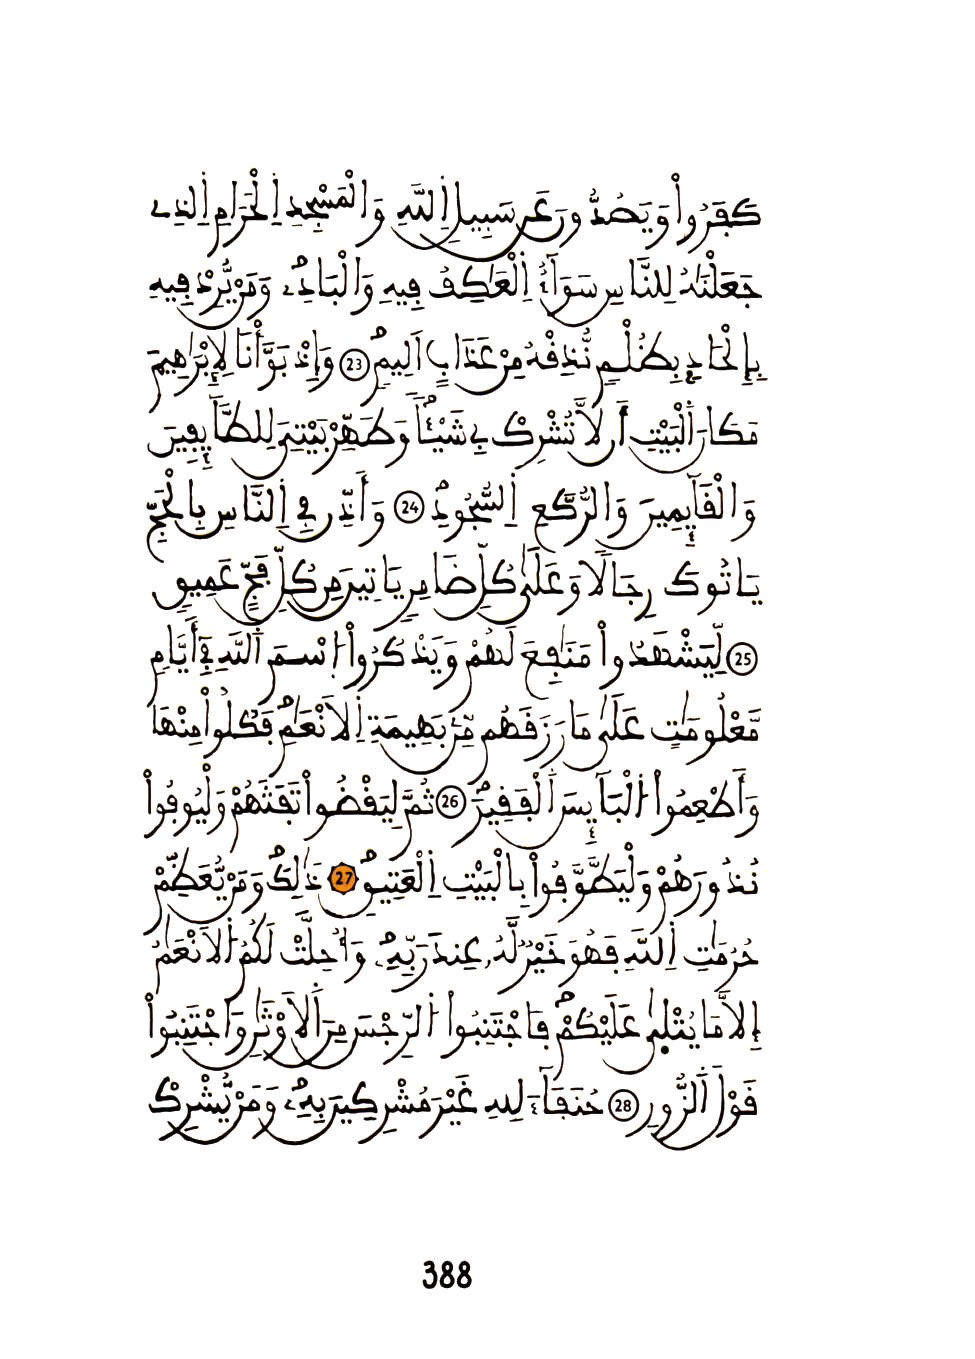 كَفَرُواْ وَيَصُدُّونَ عَن سَبِيلِ اِ۬للَّهِ وَالْمَسْجِدِ اِ۬لْحَرَامِ اِ۬لذِے
جَعَلْنَٰهُ لِلنَّاسِ سَوَآءٌ اِ۬لْعَٰكِفُ فِيهِ وَالْبَادِۦ وَمَنْ يُّرِدْ فِيهِ
بِإِلْحَادٍ بِظُلْمٍ نُّذِقْهُ مِنْ عَذَابٍ اَلِيمٍ 23 وَإِذْ بَوَّأْنَا لِإِبْرَٰهِيمَ
مَكَانَ اَ۬لْبَيْتِ أَن لَّا تُشْرِكْ بِے شَيْـٔاً وَطَهِّرْ بَيْتِيَ لِلطَّآئِفِينَ
وَالْقَآئِمِينَ وَالرُّكَّعِ اِ۬لسُّجُودِ 24 وَأَذِّن فِے اِ۬لنَّاسِ بِالْحَجِّ
يَاتُوكَ رِجَالًا وَعَلَىٰ كُلِّ ضَامِرٍ يَاتِينَ مِن كُلِّ فَجٍّ عَمِيقٍ
25 لِّيَشْهَدُواْ مَنَٰفِعَ لَهُمْ وَيَذْكُرُواْ اُ۪سْمَ اَ۬للَّهِ فِےٓ أَيَّامٍ
مَّعْلُومَٰتٍ عَلَىٰ مَا رَزَقَهُم مِّنۢ بَهِيمَةِ اِ۬لَانْعَٰمِ فَكُلُواْ مِنْهَا
وَأَطْعِمُواْ اُ۬لْبَآئِسَ اَ۬لْفَقِيرَ 26 ثُمَّ لِيَقْضُواْ تَفَثَهُمْ وَلْيُوفُواْ
نُذُورَهُمْ وَلْيَطَّوَّفُواْ بِالْبَيْتِ اِ۬لْعَتِيقِ 27 ذَٰلِكَ وَمَنْ يُّعَظِّمْ
حُرُمَٰتِ اِ۬للَّهِ فَهُوَ خَيْرٌ لَّهُۥ عِندَ رَبِّهِۦ وَأُحِلَّتْ لَكُمُ اُ۬لَانْعَٰمُ
إِلَّا مَا يُتْلَىٰ عَلَيْكُمْ فَاجْتَنِبُواْ اُ۬لرِّجْسَ مِنَ اَ۬لَاوْثَٰنِ وَاجْتَنِبُواْ
قَوْلَ اَ۬لزُّورِ 28 حُنَفَآءَ لِلهِ غَيْرَ مُشْرِكِينَ بِهِۦ وَمَنْ يُّشْرِكْ
388